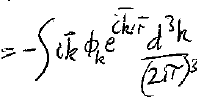 = -∫ i k̄ ϕ_k e^{i k̄ r̄} d³k / (2π)³